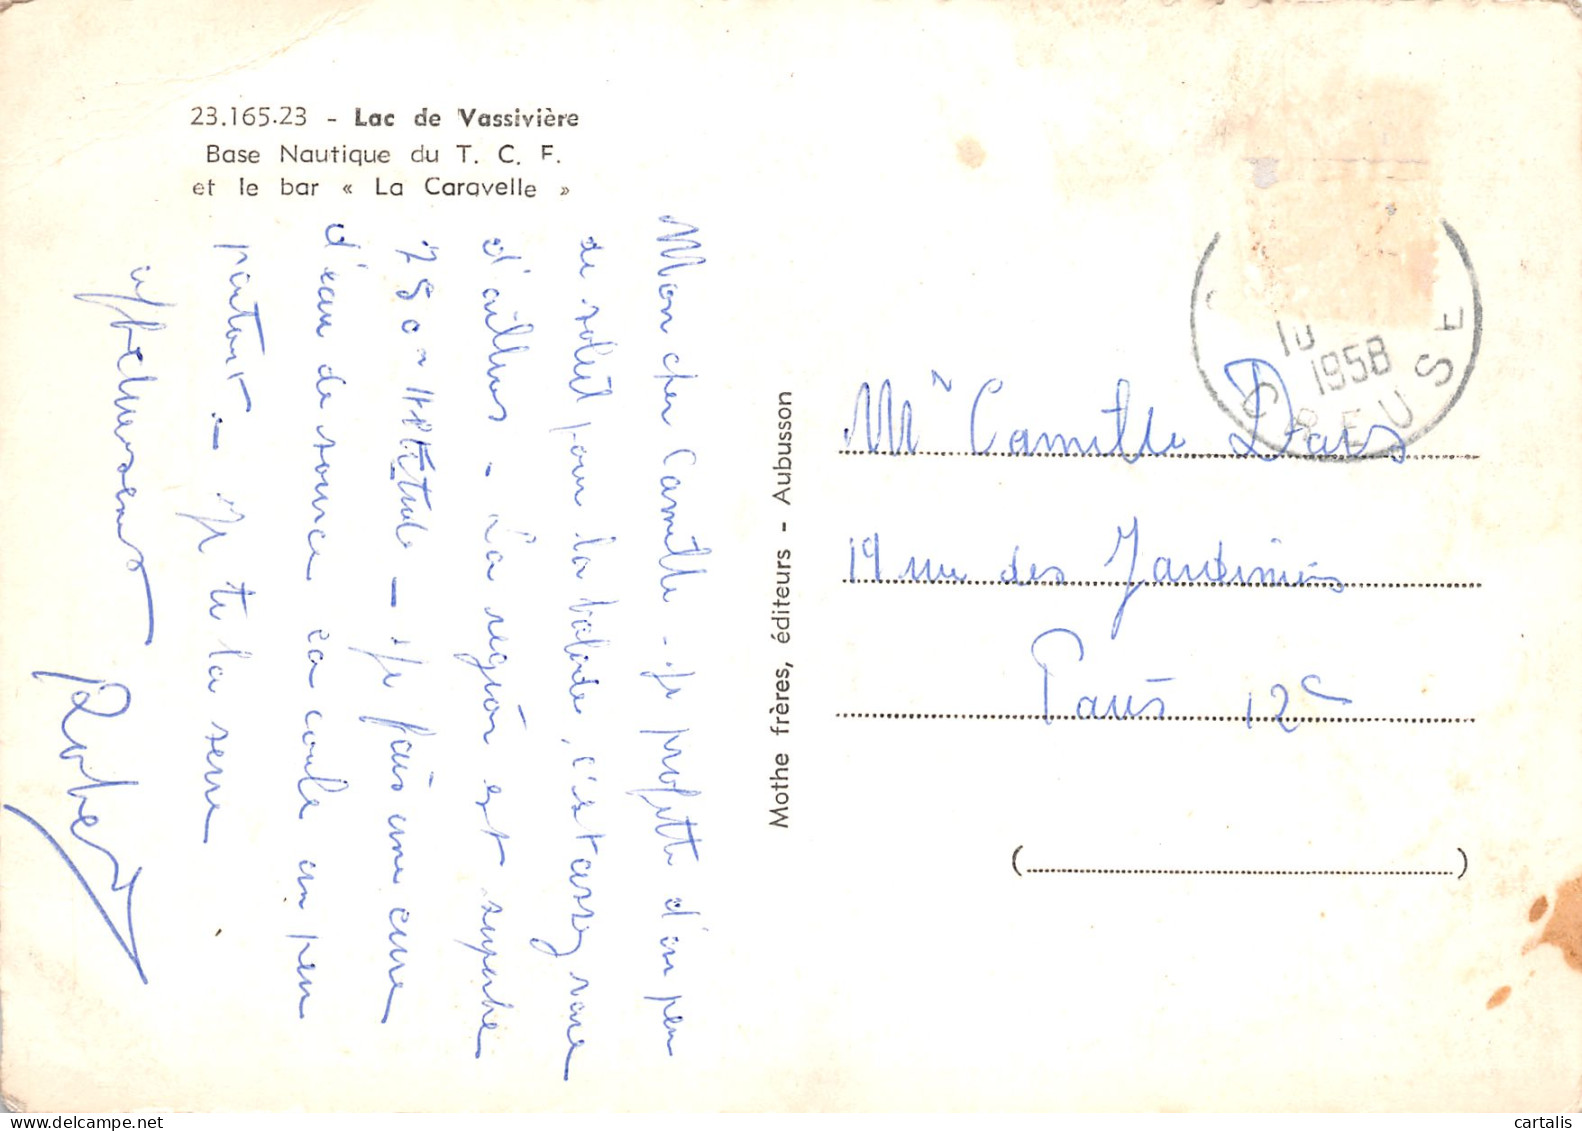 23.165.23 - Lac de Vassivière
Base Nautique du T. C. F.
et le bar « La Caravelle »
Mon cher Camille - Je profite d'un peu
de soleil pour la balade, c'est assez rare
d'ailleurs - La région est superbe
750 m d'altitude - Je fais une cure
d'eau de source ça coule un peu
partout - Je te la serre
affectueusement
Robert
Mothe frères, éditeurs - Aubusson
10
1958
CREUSE
Mr Camille
19 rue des Jardiniers
Paris 12e
(..........)
cartalis